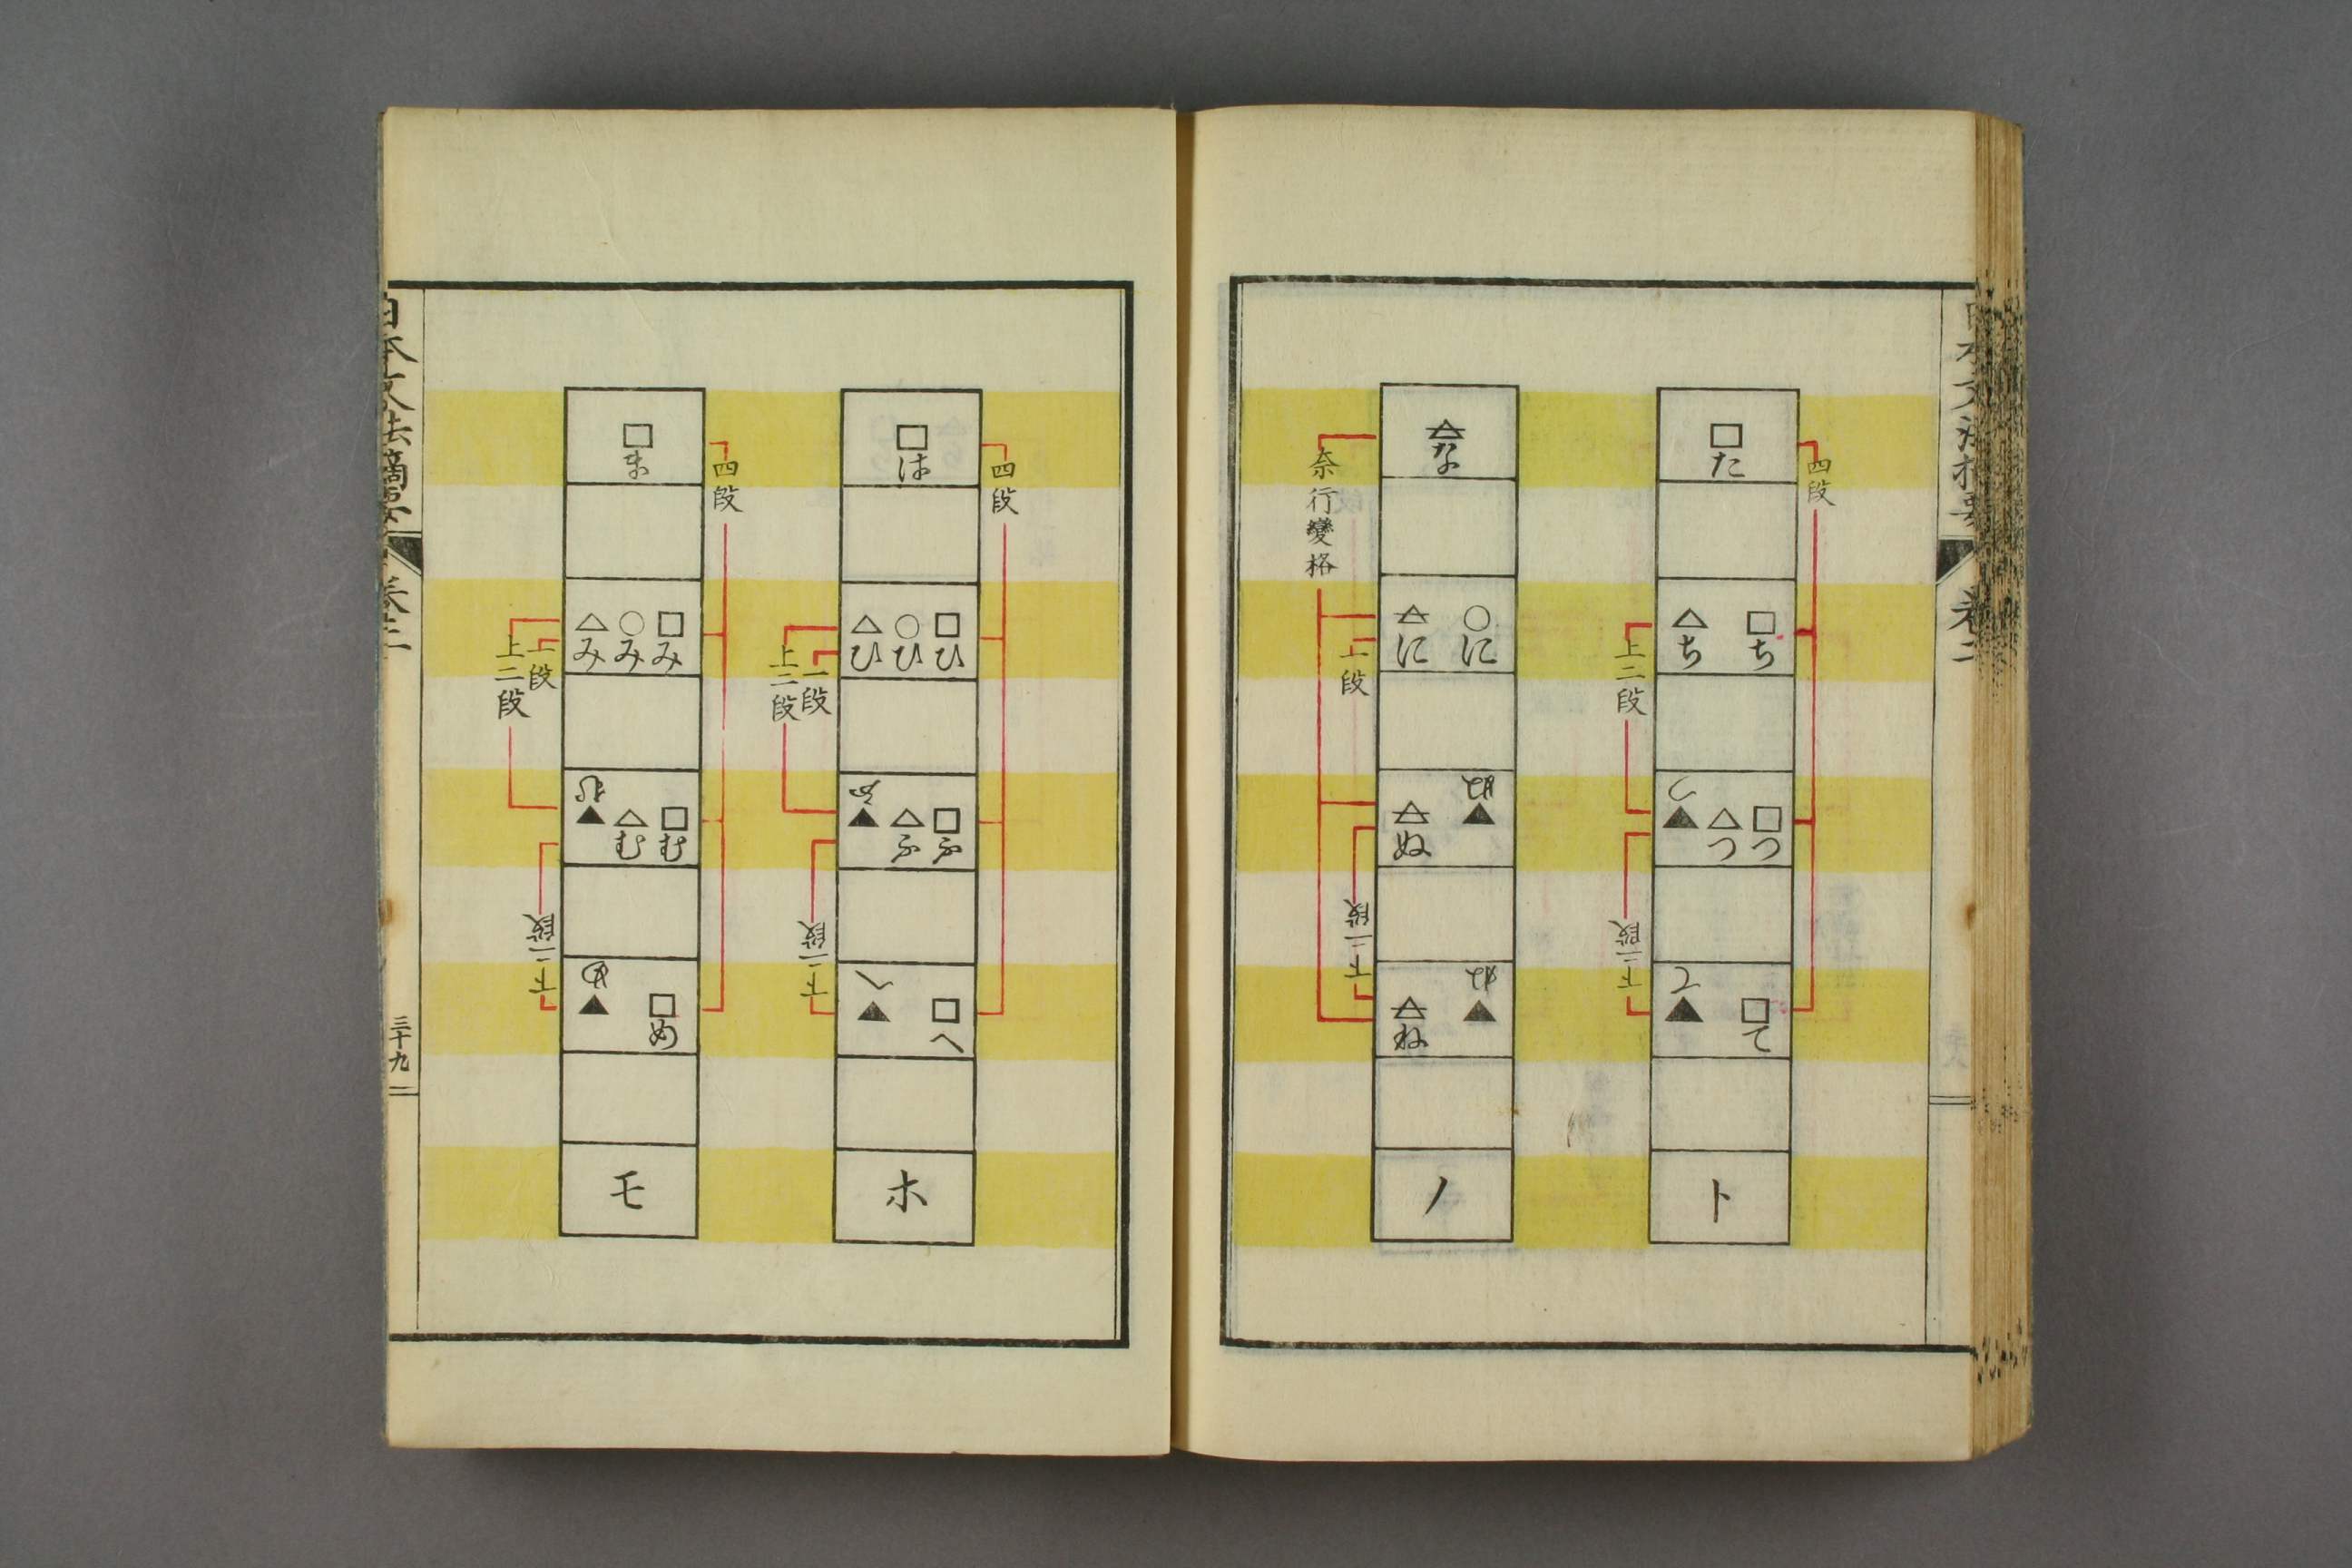 四段
□た
□ち △ち
□つ △つ ▲つ
□て ▲て
ト
上二段
下二段
な
○に に
▲ぬ ぬ
▲ね ね
ノ
一段
下二段
奈行變格
四段
□は
□ひ ○ひ △ひ
□ふ △ふ ▲ふ
□へ ▲へ
ホ
一段
上二段
下二段
四段
□ま
□み ○み △み
□む △む ▲む
□め ▲め
モ
一段
上二段
下二段
日本文法摘要
卷二
三十九